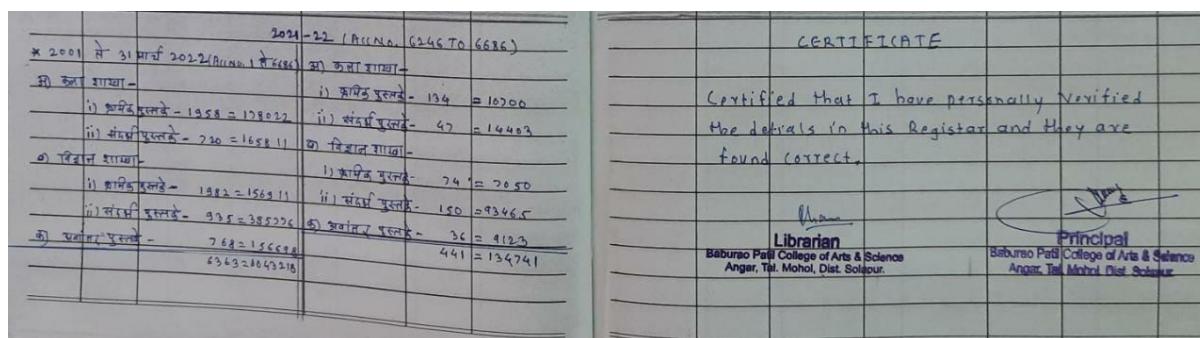 2021-22 (Acc No. 6246 TO 6686)
* 2001 ते 31 मार्च 2022 (Acc No. 1 ते 6686)
अ) कला शाखा -
i) क्रमिक पुस्तके - 1958 = 178022
ii) संदर्भ पुस्तके - 720 = 165811
ब) विज्ञान शाखा -
i) क्रमिक पुस्तके - 1982 = 156911
ii) संदर्भ पुस्तके - 935 = 385776
क) अवांतर पुस्तके - 768 = 156698
6363 = 1043218
अ) कला शाखा -
i) क्रमिक पुस्तके - 134 = 10700
ii) संदर्भ पुस्तके - 47 = 14403
ब) विज्ञान शाखा -
i) क्रमिक पुस्तके - 74 = 7050
ii) संदर्भ पुस्तके - 150 = 93465
क) अवांतर पुस्तके - 36 = 9123
441 = 134741
CERTIFICATE
Certified that I have personally Verified
the detials in this Registar and they are
found correct.
Librarian
Baburao Patil College of Arts & Science
Angar, Tal. Mohol, Dist. Solapur.
Principal
Baburao Patil College of Arts & Science
Angar, Tal. Mohol Dist. Solapur